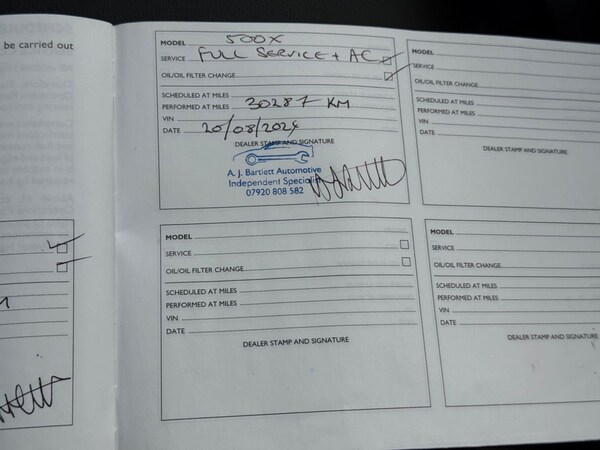 be carried out
MODEL 500X
SERVICE FULL SERVICE + AC
OIL/OIL FILTER CHANGE
SCHEDULED AT MILES
PERFORMED AT MILES 30287 KM
VIN
DATE 20/08/2024
DEALER STAMP AND SIGNATURE
A. J. Bartlett Automotive
Independent Specialist
07920 808 582
MODEL
SERVICE
OIL/OIL FILTER CHANGE
SCHEDULED AT MILES
PERFORMED AT MILES
VIN
DATE
DEALER STAMP AND SIGNATURE
MODEL
SERVICE
OIL/OIL FILTER CHANGE
SCHEDULED AT MILES
PERFORMED AT MILES
VIN
DATE
DEALER STAMP AND SIGNATURE
MODEL
SERVICE
OIL/OIL FILTER CHANGE
SCHEDULED AT MILES
PERFORMED AT MILES
VIN
DATE
DEALER STAMP AND SIGNATURE